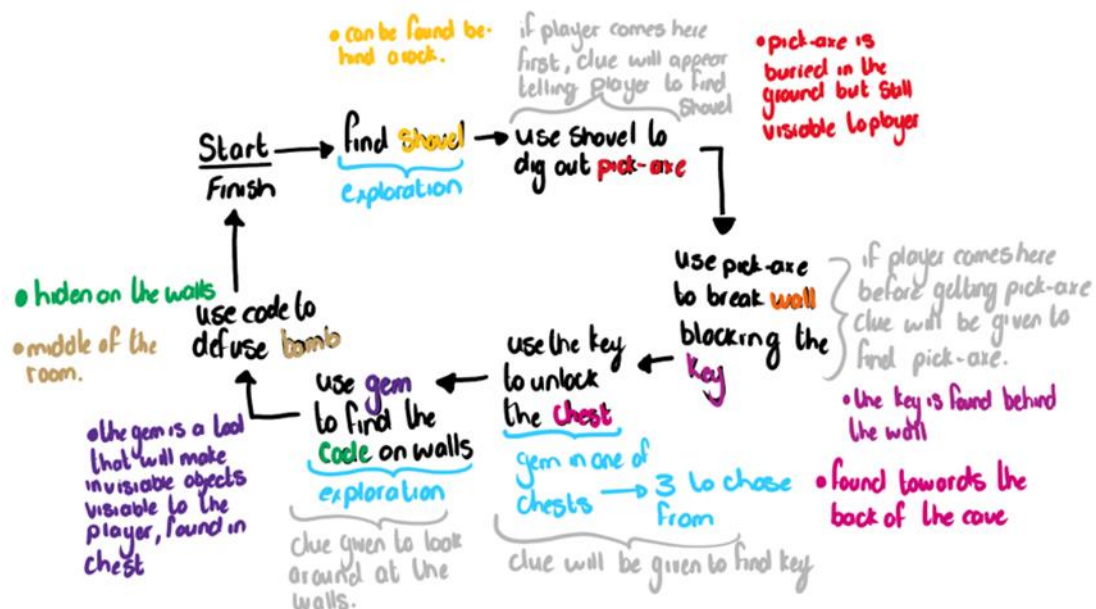 • can be found be-
hind a rock.
if player comes here
first, clue will appear
telling player to find
Shovel
• pick-axe is
buried in the
ground but still
visiable to player
Start
Finish
find Shovel
exploration
use shovel to
dig out pick-axe
use pick-axe
to break wall
blocking the
key
if player comes here
before getting pick-axe
clue will be given to
find pick-axe.
• the key is found behind
the wall
use the key
to unlock
the chest
gem in one of
chests
3 to chose
from
clue will be given to find key
• found towards the
back of the cave
use gem
to find the
code on walls
exploration
clue given to look
around at the
walls.
• the gem is a tool
that will make
invisiable objects
visiable to the
player, found in
chest
use code to
defuse bomb
• hiden on the walls
• middle of the
room.